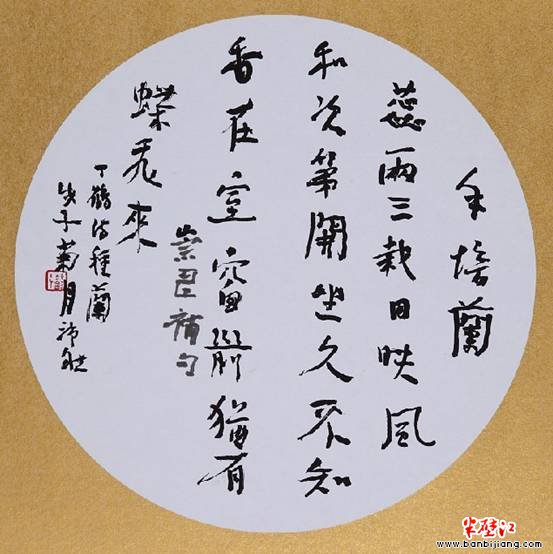 手培蘭
蕊兩三栽日映風
和次第開坐久不知
香在室窗前猶有
蝶飛來
丁鶴詩種蘭
戊子菊月
半壁江
www.banbijiang.com